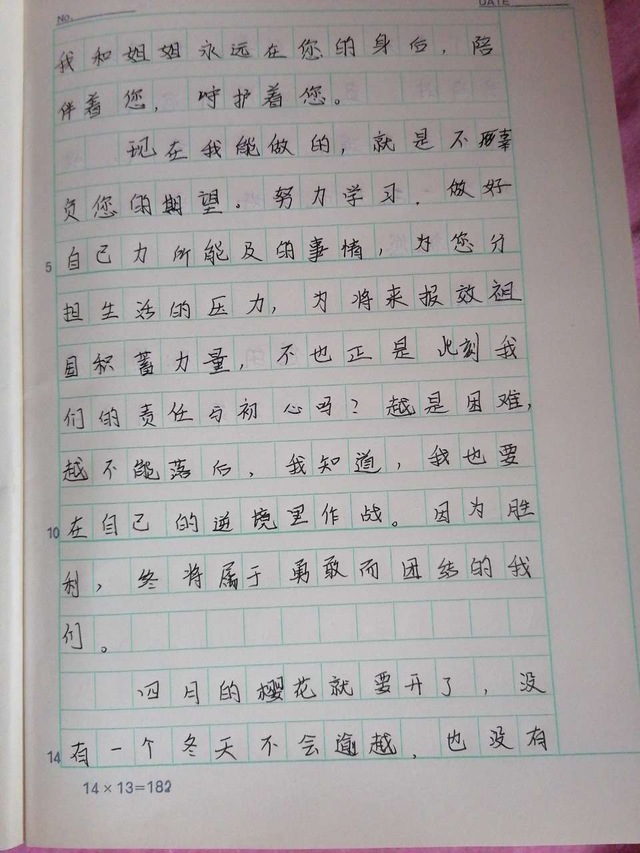 NO.
DATE
我和姐姐永远在您的身后，陪
伴着您，呵护着您。
现在我能做的，就是不辜
负您的期望。努力学习．做好
5 自己力所能及的事情，为您分
担生活的压力，为将来报效祖
国积蓄力量，不也正是此刻我
们的责任与初心吗？越是困难，
越不能落后，我知道，我也要
10 在自己的逆境里作战。因为胜
利，终将属于勇敢而团结的我
们。
四月的樱花就要开了，没
14 有一个冬天不会逾越，也没有
14×13=182